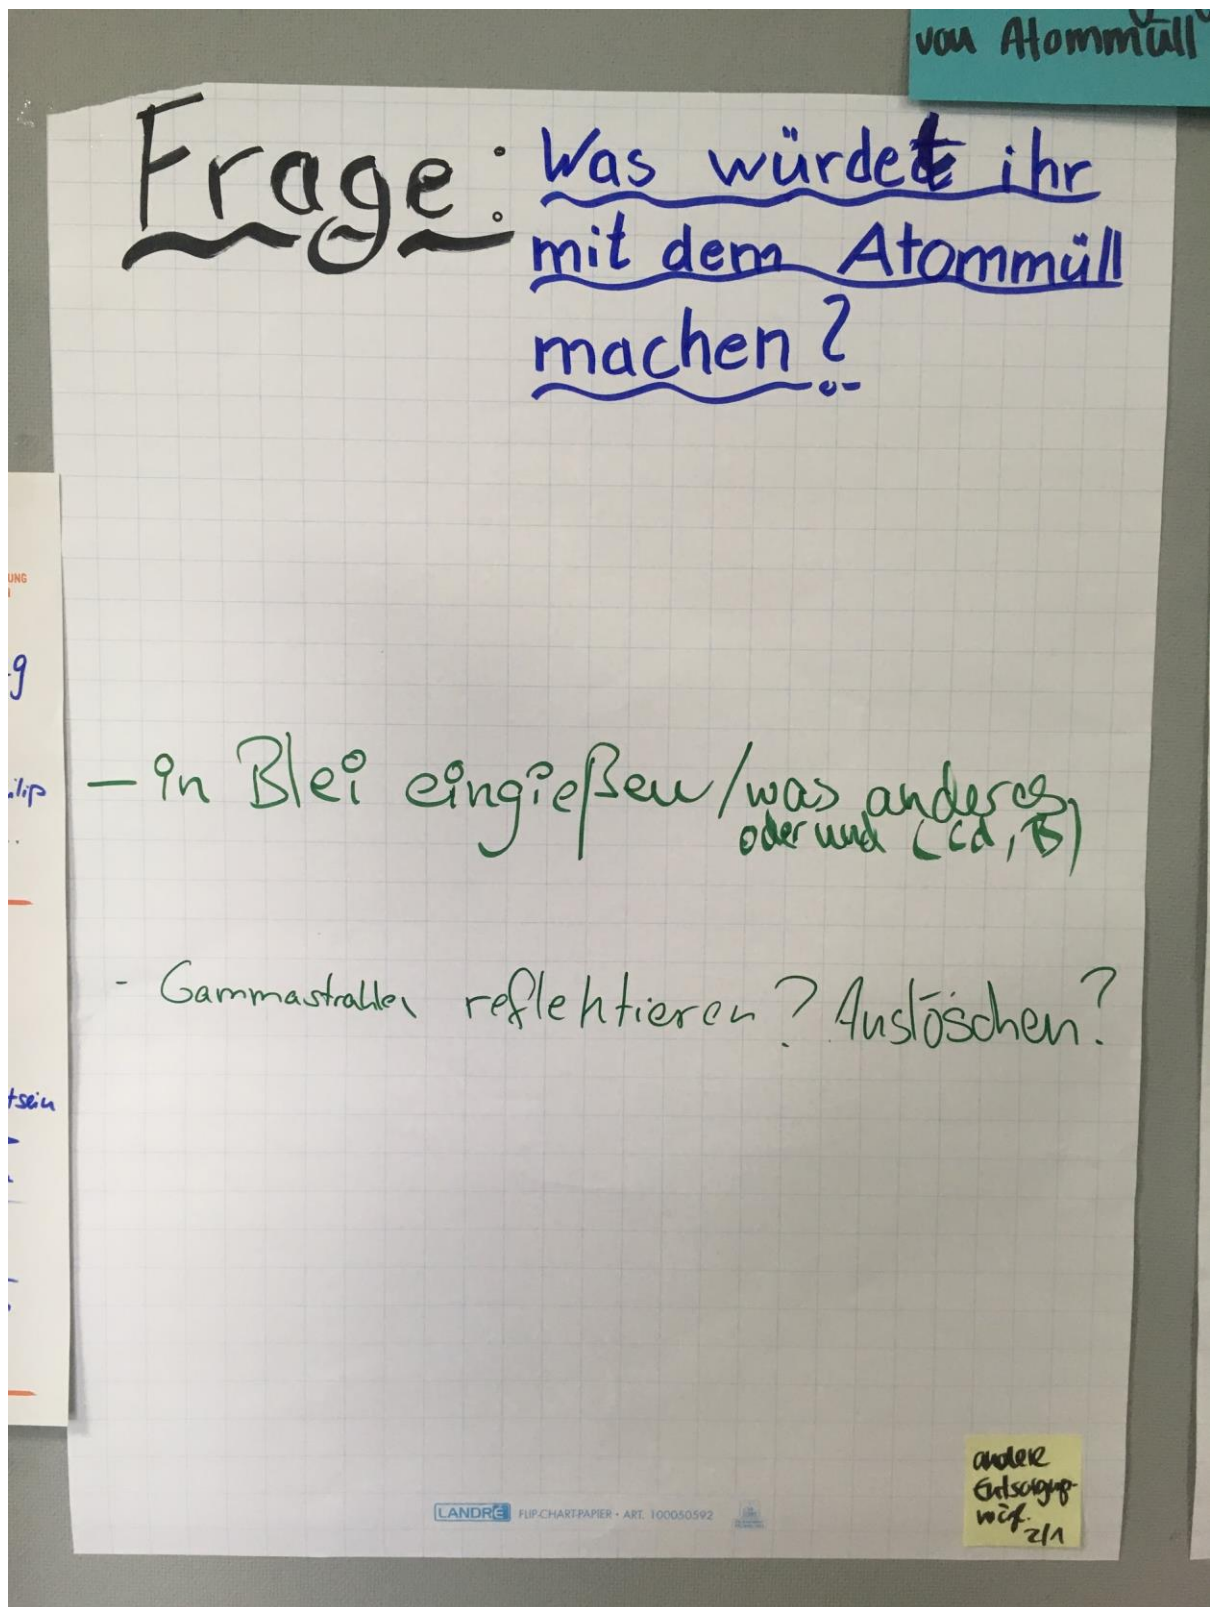 von Atommüll
Frage: Was würdet ihr
mit dem Atommüll
machen?
UNG
g
ilip
tsein
- in Blei eingießen/was anderes
oder und (Cd, B)
- Gammastrahlen reflektieren? Auslöschen?
LANDRÉ FLIP-CHART-PAPIER • ART. 100050592
andere
Entsorgungs-
2/1